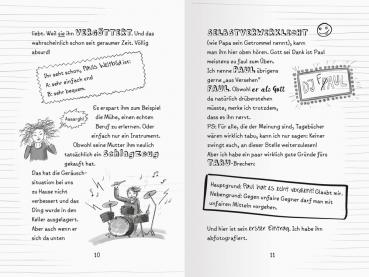 liebt. Weil sie ihn VERGÖTTERT. Und das
wahrscheinlich schon seit geraumer Zeit. Völlig
absurd!
Ihr seht schon, PAULS WELTBILD ist:
A: sehr einfach und
B: sehr bequem.
Aaaargh!
Es erspart ihm zum Beispiel
die Mühe, einen echten
Beruf zu erlernen. Oder
einfach nur ein Instrument.
Obwohl seine Mutter ihm neulich
tatsächlich ein Schlagzeug
gekauft hat.
Das hat die Geräusch-
situation bei uns
zu Hause nicht
verbessert und das
Ding wurde in den
Keller ausgelagert.
Aber auch wenn er
sich da unten
10
SELBSTVERWIRKLICHT
(wie Papa sein Getrommel nennt), kann
man ihn hier oben hören. Gott sei Dank ist Paul
meistens zu faul zum Üben.
Ich nenne PAUL übrigens
gerne „aus Versehen“
FAUL. Obwohl er als Gott
da natürlich drüberstehen
müsste, merke ich trotzdem,
dass es ihn nervt.
DJ FAUL
PS: Für alle, die der Meinung sind, Tagebücher
wären wirklich tabu, kann ich nur sagen: Keiner
zwingt euch, an dieser Stelle weiterzulesen!
Aber ich habe ein paar wirklich gute Gründe fürs
TABU-Brechen:
Hauptgrund: PAUL HAT ES ECHT VERDIENT! Glaubt mir.
Nebengrund: Gegen unfaire Gegner darf man mit
unfairen Mitteln vorgehen.
Und hier ist sein erster Eintrag. Ich habe ihn
abfotografiert.
11